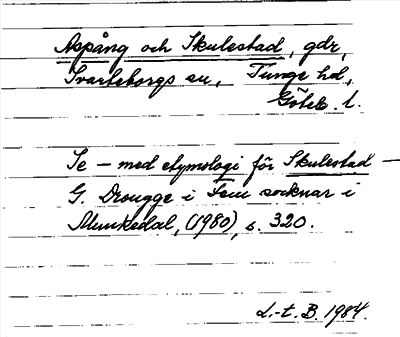 Aspång och Skulestad, gdr,
Svarteborgs sn, Tunge hd,
Göteb. l.
Se – med etymologi för Skulestad –
G. Drougge i Fem socknar i
Munkedal, (1980), s. 320.
L.-t. B. 1984.